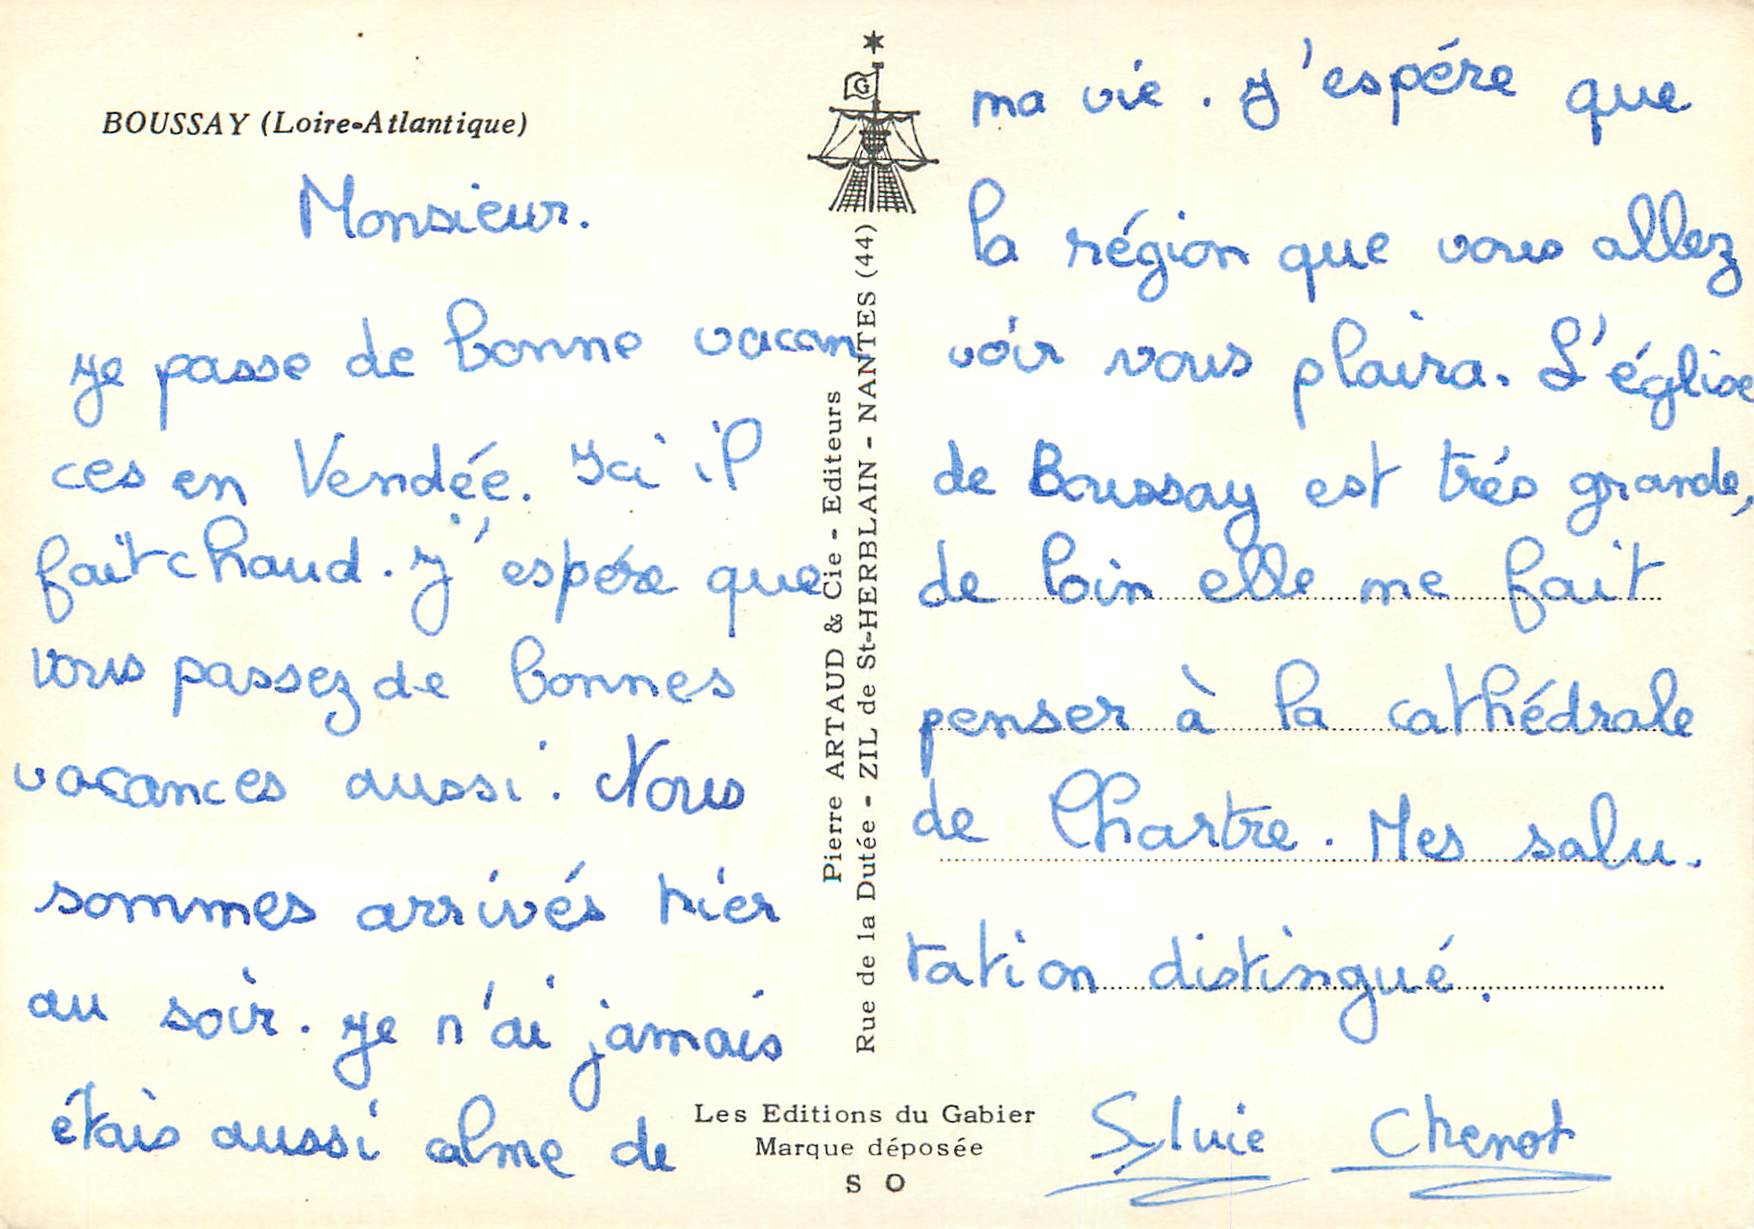 BOUSSAY (Loire-Atlantique)
Monsieur.
Je passe de bonne vacan
ces en Vendée. Ici il
fait chaud. J'espére que
vous passez de bonnes
vacances aussi. Nous
sommes arrivés hier
au soir. Je n'ai jamais
étais aussi calme de
ma vie. J'espére que
la région que vous allez
voir vous plaira. L'église
de Boussay est trés grande,
de loin elle me fait
penser à la cathédrale
de Chartre. Mes salu.
tation distingué.
Sylvie Chenot
G
Pierre ARTAUD & Cie - Editeurs
Rue de la Dutée - ZIL de St-HERBLAIN - NANTES (44)
Les Editions du Gabier
Marque déposée
S O